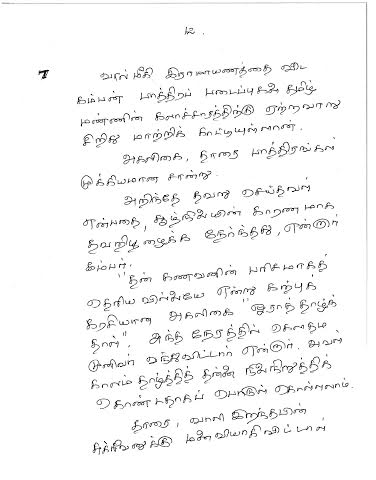 12.
7 வால்மீகி இராமாயணத்தை விட
கம்பன் பாத்திரப் படைப்புகளை தமிழ்
மண்ணின் கலாச்சாரத்திற்கு ஏற்றவாறு
சிறிது மாற்றிக் காட்டியுள்ளான்.
அகலிகை, தாரை பாத்திரங்கள்
முக்கியமான சான்று.
அறிந்தே தவறு செய்தவள்
என்பதை, சூழ்நிலையின் காரணமாக
தவறிழைக்க நேர்ந்தது, என்றார்
கம்பர்.
"தன் கணவனின் பரிசமாகத்
தெரியவில்லையே என்று கற்புக்
கரசியான அகலிகை "ஓராத் தாழ்க்
தாள்". அந்த நேரத்தில் கௌதம
முனிவர் வந்துவிட்டார் என்றார். அவள்
காலம் தாழ்த்தித் தன்னை
கொண்டதாகப் பொருள் கொள்ளலாம்.
தாரை, வாலி இறந்தபின்
சுக்ரீவனுக்கு மனைவியாகிவிட்டாள்